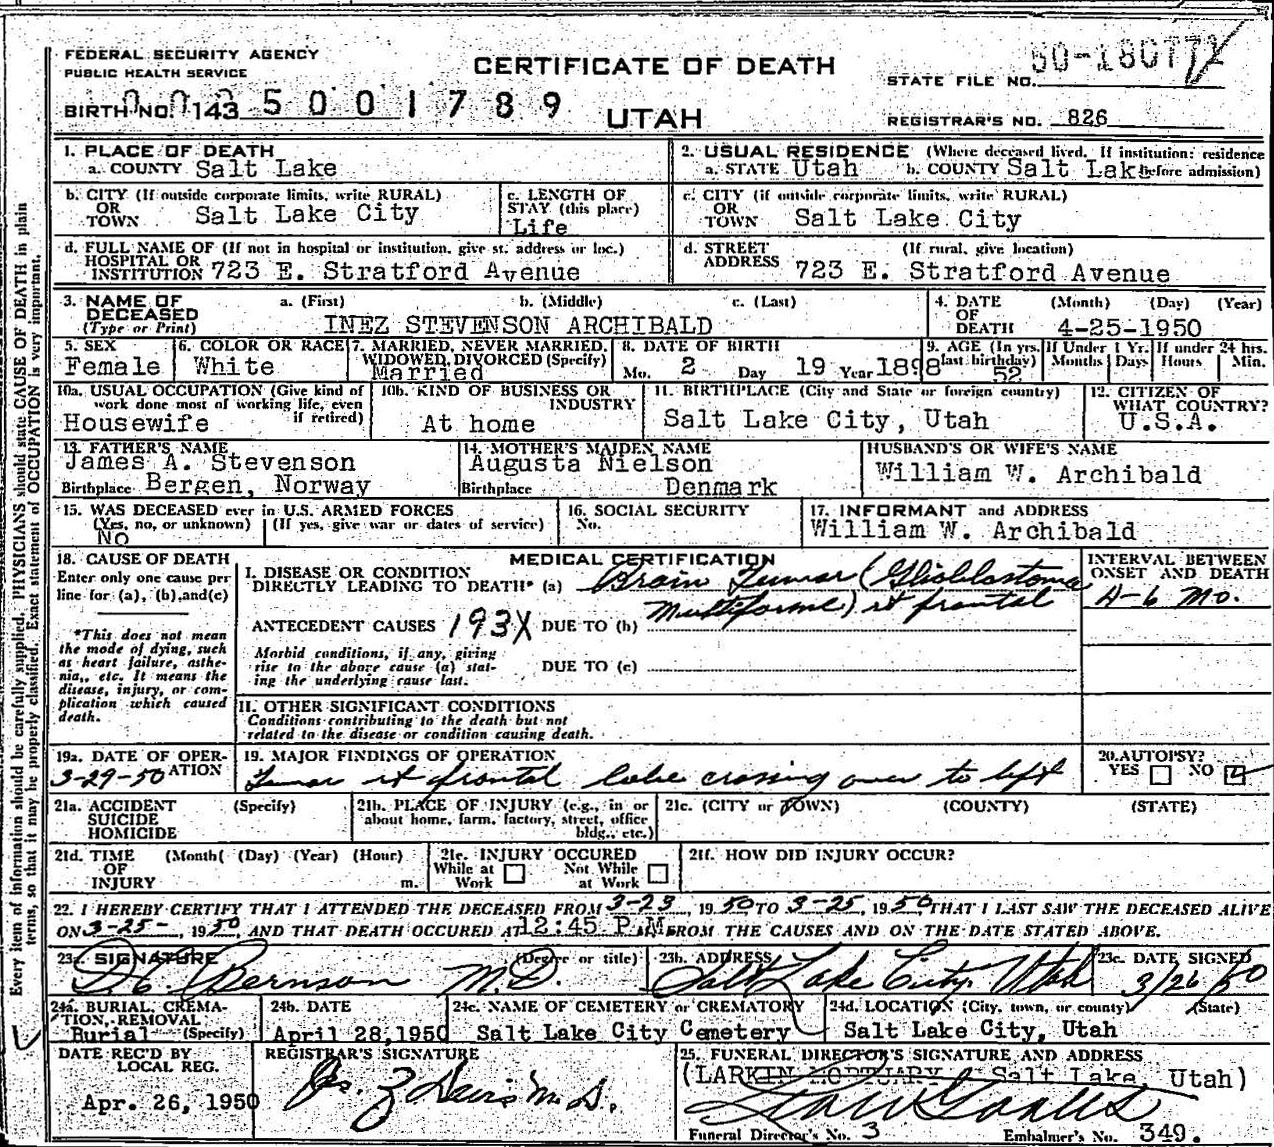 FEDERAL SECURITY AGENCY
PUBLIC HEALTH SERVICE
CERTIFICATE OF DEATH
UTAH
STATE FILE NO.
BIRTH NO. 143 5 0 0 1 7 8 9
REGISTRAR'S NO. 826
1. PLACE OF DEATH
a. COUNTY Salt Lake
2. USUAL RESIDENCE (Where deceased lived. If institution: residence
a. STATE Utah b. COUNTY Salt Lake before admission)
b. CITY (If outside corporate limits, write RURAL)
OR
TOWN Salt Lake City
c. LENGTH OF
STAY (this place)
Life
c. CITY (if outside corporate limits, write RURAL)
OR
TOWN Salt Lake City
d. FULL NAME OF (If not in hospital or institution, give st. address or loc.)
HOSPITAL OR
INSTITUTION 723 E. Stratford Avenue
d. STREET (If rural, give location)
ADDRESS 723 E. Stratford Avenue
3. NAME OF a. (First) b. (Middle) c. (Last)
DECEASED
(Type or Print) INEZ STEVENSON ARCHIBALD
4. DATE (Month) (Day) (Year)
OF
DEATH 4-25-1950
5. SEX
Female
6. COLOR OR RACE
White
7. MARRIED, NEVER MARRIED,
WIDOWED, DIVORCED (Specify)
Married
8. DATE OF BIRTH
Mo. 2 Day 19 Year 1898
9. AGE (In yrs.
last birthday)
52
If Under 1 Yr.
Months Days
If under 24 hrs.
Hours Min.
10a. USUAL OCCUPATION (Give kind of
work done most of working life, even
if retired)
Housewife
10b. KIND OF BUSINESS OR
INDUSTRY
At home
11. BIRTHPLACE (City and State or foreign country)
Salt Lake City, Utah
12. CITIZEN OF
WHAT COUNTRY?
U.S.A.
13. FATHER'S NAME
James A. Stevenson
Birthplace Bergen, Norway
14. MOTHER'S MAIDEN NAME
Augusta Nielson
Birthplace Denmark
HUSBAND'S OR WIFE'S NAME
William W. Archibald
15. WAS DECEASED ever in U.S. ARMED FORCES
(Yes, no, or unknown) (If yes, give war or dates of service)
No
16. SOCIAL SECURITY
No.
17. INFORMANT and ADDRESS
William W. Archibald
18. CAUSE OF DEATH
Enter only one cause per
line for (a), (b), and (c)
*This does not mean
the mode of dying, such
as heart failure, asthe-
nia,, etc. It means the
disease, injury, or com-
plication which caused
death.
MEDICAL CERTIFICATION
I. DISEASE OR CONDITION
DIRECTLY LEADING TO DEATH* (a) Brain Tumor (Glioblastoma
Multiforme) rt frontal
ANTECEDENT CAUSES 193X DUE TO (b)
Morbid conditions, if any, giving
rise to the above cause (a) stat-
ing the underlying cause last.
DUE TO (c)
II. OTHER SIGNIFICANT CONDITIONS
Conditions contributing to the death but not
related to the disease or condition causing death.
INTERVAL BETWEEN
ONSET AND DEATH
4-6 Mo.
19a. DATE OF OPER-
ATION
3-29-50
19. MAJOR FINDINGS OF OPERATION
Tumor rt frontal lobe crossing over to left
20. AUTOPSY?
YES NO
21a. ACCIDENT (Specify)
SUICIDE
HOMICIDE
21b. PLACE OF INJURY (e.g., in or
about home, farm, factory, street, office
bldg., etc.)
21c. (CITY or TOWN) (COUNTY) (STATE)
21d. TIME (Month( (Day) (Year) (Hour)
OF
INJURY m.
21e. INJURY OCCURED
While at Work Not While at Work
21f. HOW DID INJURY OCCUR?
22. I HEREBY CERTIFY THAT I ATTENDED THE DECEASED FROM 3-23, 1950 TO 3-25, 1950 THAT I LAST SAW THE DECEASED ALIVE
ON 3-25-, 1950, AND THAT DEATH OCCURED AT 12:45 P.M. FROM THE CAUSES AND ON THE DATE STATED ABOVE.
23. SIGNATURE (Degree or title)
Bernson M.D.
23b. ADDRESS
Salt Lake City, Utah
23c. DATE SIGNED
3/26/50
24a. BURIAL, CREMA-
TION, REMOVAL
Burial (Specify)
24b. DATE
April 28, 1950
24c. NAME OF CEMETERY or CREMATORY
Salt Lake City Cemetery
24d. LOCATION (City, town, or county) (State)
Salt Lake City, Utah
DATE REC'D BY
LOCAL REG.
Apr. 26, 1950
REGISTRAR'S SIGNATURE
25. FUNERAL DIRECTOR'S SIGNATURE AND ADDRESS
(LARKIN MORTUARY Salt Lake, Utah)
Funeral Director's No. 3 Embalmer's No. 349.
Every item of information should be carefully supplied. PHYSICIANS should state CAUSE OF DEATH in plain
terms, so that it may be properly classified. Exact statement of OCCUPATION is very important.